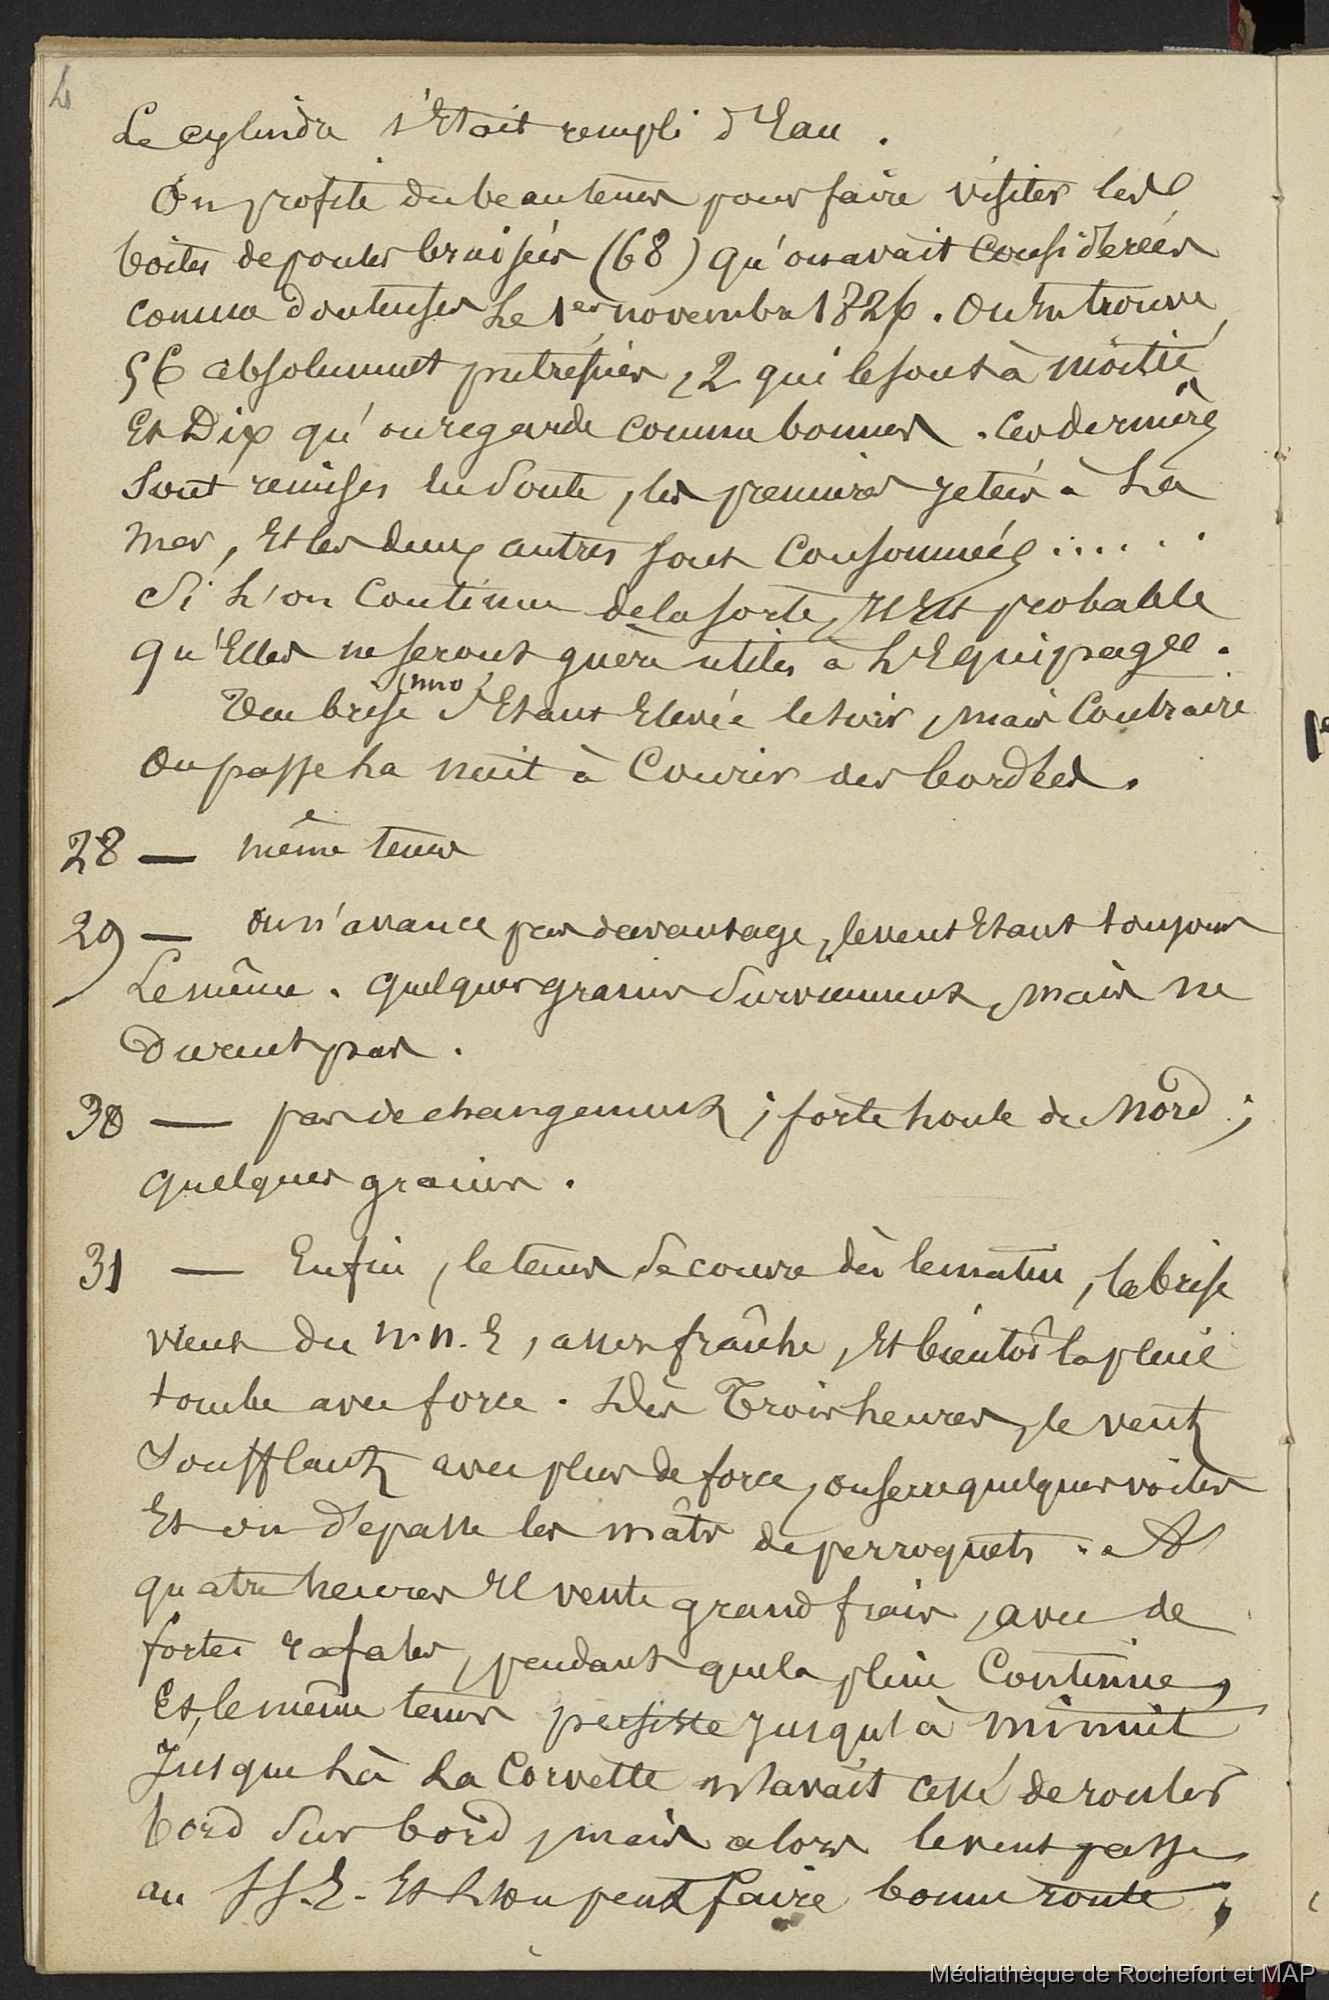 Le cylindre s'Etait rempli d'Eau.
On profite du beau tems pour faire visiter les
boites de poules braisées (68) qu'on avait considerées
comme douteuses Le 1er novembre 1826. On En trouve
56 absolument putrefiées, 2 qui le sont à moitié
Et Dix qu'on regarde comme bonnes. Ces dernières
Sont remises En Soute, les premieres jetées à La
mer, Et les deux autres sont Consommées......
Si L'on Continue de la sorte, Il Est probable
qu'Elles ne seront guère utiles à L'Equipage.
(nno)
Une brise S'Etant Elevée le soir, mais Contraire
On passe La nuit à Courir des bordées.
28 — même tems
29 — On n'avance pas davantage, le vent Etant toujours
Le même. Quelques grains Surviennent, mais ne
Durent pas.
30 — pas de changement; forte houle du Nord;
quelques grains.
31 — Enfin, le tems Se couvre dès le matin, la brise
vient du N.N.E, assez fraîche, Et bientôt la pluie
tombe avec force. Dès Trois heures, le vent
Soufflant avec plus de force, on serre quelques voiles
Et on dépasse les mâts de perroquets. A
quatre heures Il vente grand frais, avec de
fortes rafales, pendant que la pluie Continue,
Et, le même tems persiste jusqu'à minuit
Jusque Là La Corvette n'avait cessé de rouler
bord Sur bord, mais alors le vent passe
au SS.E. Et L'on peut faire bonne route;
Médiathèque de Rochefort et MAP